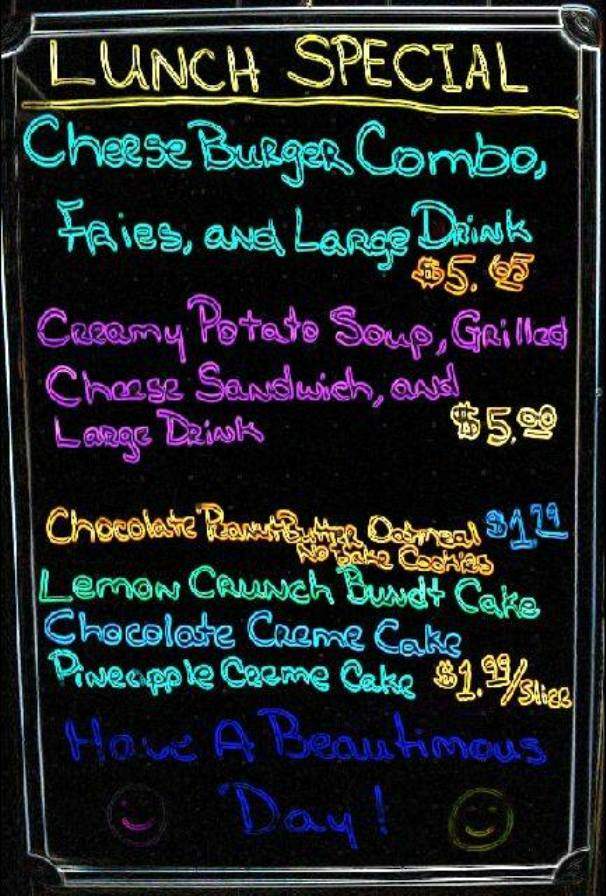 LUNCH SPECIAL
Cheese Burger Combo,
Fries, and Large Drink
$5.65
Creamy Potato Soup, Grilled
Cheese Sandwich, and
Large Drink $5.00
Chocolate Peanut Butter Oatmeal $1.99
No bake Cookies
Lemon Crunch Bundt Cake
Chocolate Creme Cake
Pineapple Creme Cake $1.99/Slice
Have A Beautimous
Day!